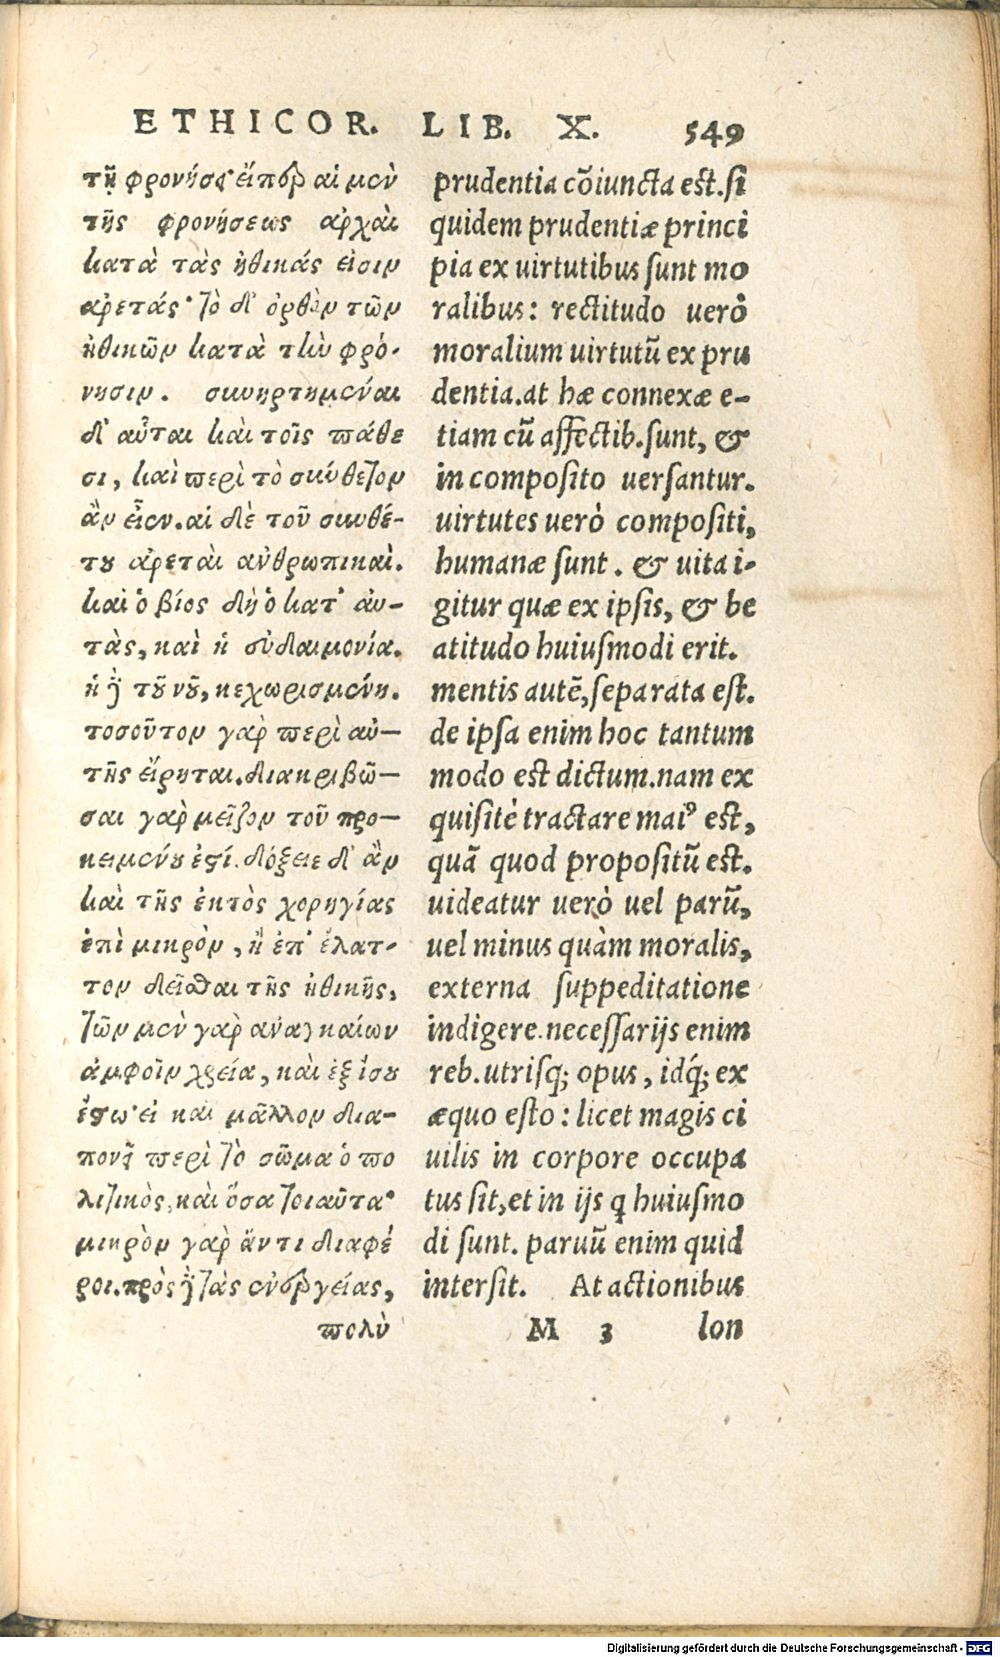 ETHICOR. LIB. X. 549
τῇ φρονήσει· εἴπερ αἱ μὲν
τῆς φρονήσεως ἀρχαὶ
κατὰ τὰς ἠθικάς εἰσιν
ἀρετάς· τὸ δ' ὀρθὸν τῶν
ἠθικῶν κατὰ τὴν φρό-
νησιν. συνηρτημέναι
δ' αὗται καὶ τοῖς πάθε
σι, καὶ περὶ τὸ σύνθετον
ἂν εἶεν. αἱ δὲ τοῦ συνθέ-
του ἀρεταὶ ἀνθρωπικαί.
καὶ ὁ βίος δὴ ὁ κατ' αὐ-
τὰς, καὶ ἡ εὐδαιμονία.
ἡ δὲ τοῦ νοῦ, κεχωρισμένη.
τοσοῦτον γὰρ περὶ αὐ-
τῆς εἴρηται. διακριβῶ-
σαι γὰρ μεῖζον τοῦ προ-
κειμένου ἐστί. δόξειε δ' ἂν
καὶ τῆς ἐκτὸς χορηγίας
ἐπὶ μικρὸν, ἢ ἐπ' ἔλατ-
τον δεῖσθαι τῆς ἠθικῆς,
τῶν μὲν γὰρ ἀναγκαίων
ἀμφοῖν χρεία, καὶ ἐξ ἴσου
ἔστω· εἰ καὶ μᾶλλον δια-
πονεῖ περὶ τὸ σῶμα ὁ πο
λιτικὸς, καὶ ὅσα τοιαῦτα·
μικρὸν γὰρ ἄν τι διαφέ
ροι. πρὸς δὲ τὰς ἐνεργείας,
πολὺ
prudentia cõiuncta est. si
quidem prudentiæ princi
pia ex uirtutibus sunt mo
ralibus: rectitudo uerò
moralium uirtutũ ex pru
dentia. at hæ connexæ e-
tiam cũ affectib. sunt, &
in composito uersantur.
uirtutes uerò compositi,
humanæ sunt. & uita i-
gitur quæ ex ipsis, & be
atitudo huiusmodi erit.
mentis autẽ, separata est.
de ipsa enim hoc tantum
modo est dictum. nam ex
quisitè tractare maiꝰ est,
quã quod propositũ est.
uideatur uerò uel parũ,
uel minus quàm moralis,
externa suppeditatione
indigere. necessarijs enim
reb. utrisq; opus, idq́; ex
æquo esto: licet magis ci
uilis in corpore occupa
tus sit, et in ijs q huiusmo
di sunt. paruũ enim quid
intersit. At actionibus
M 3 lon
Digitalisierung gefördert durch die Deutsche Forschungsgemeinschaft - DFG